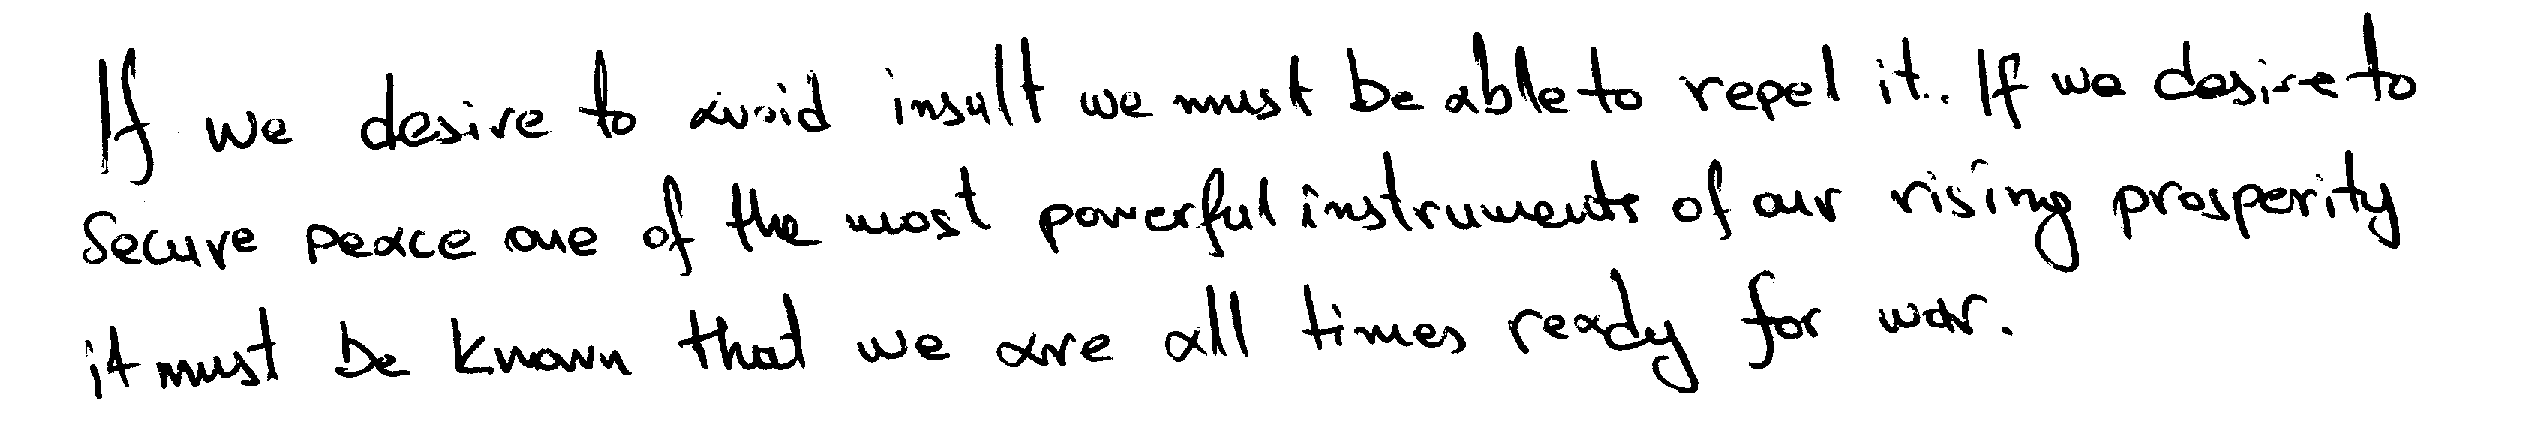 If we desire to avoid insult we must be able to repel it. If we desire to
secure peace one of the most powerful instruments of our rising prosperity
it must be known that we are all times ready for war.